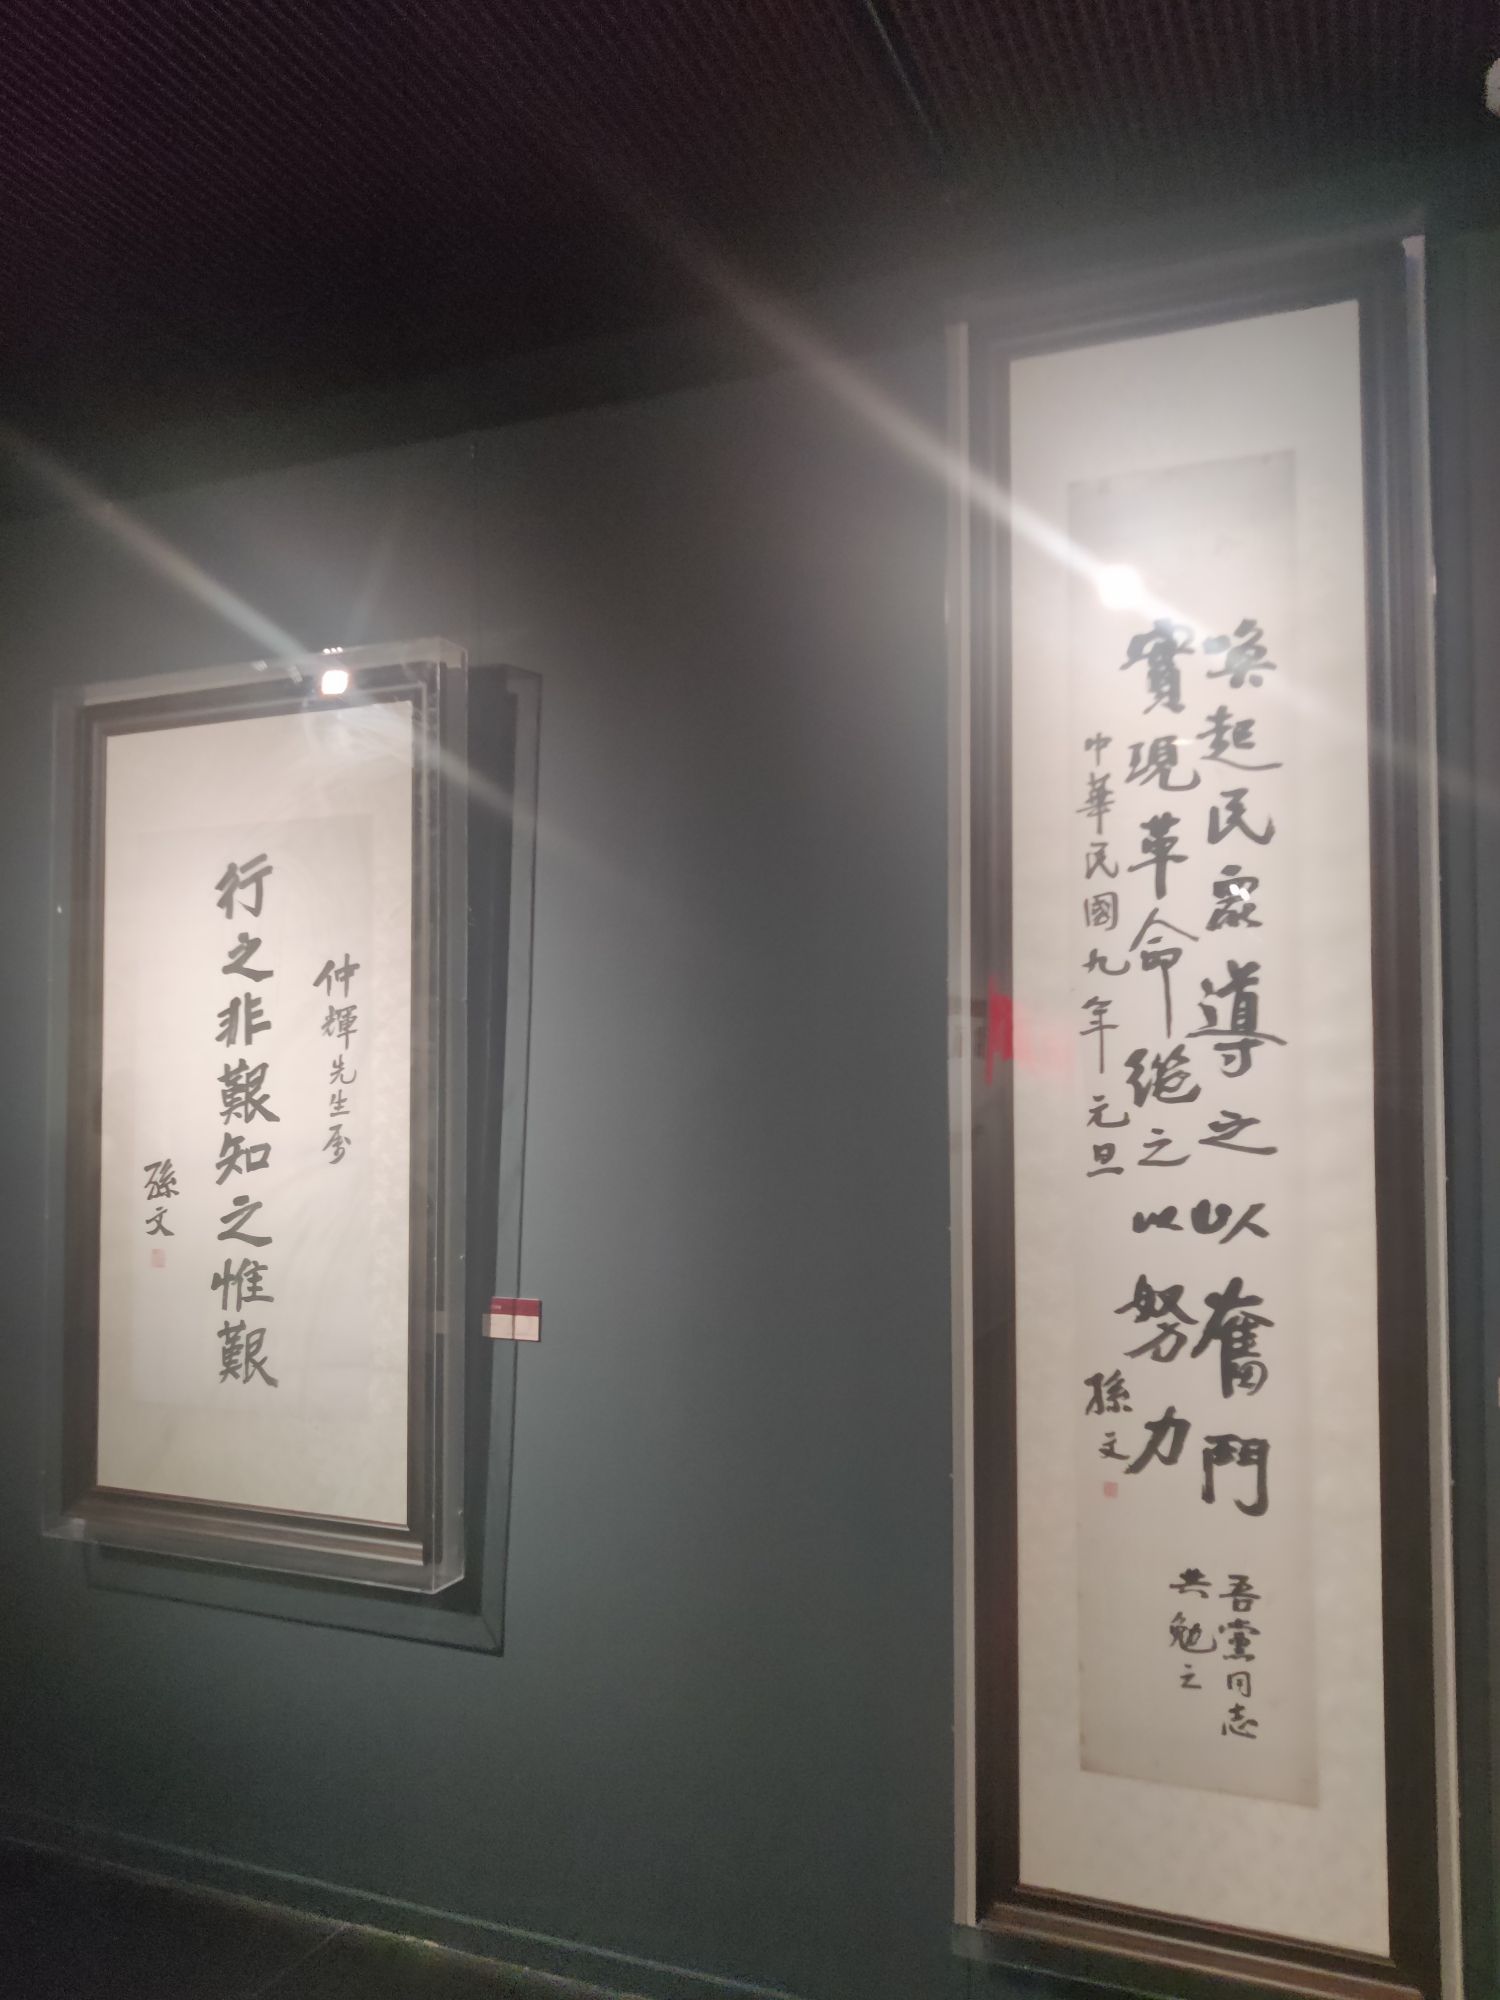 仲輝先生屬
行之非艱知之惟艱
孫文
喚起民眾導之以奮鬥
實現革命繼之以努力
中華民國九年元旦
孫文
吾黨同志
共勉之